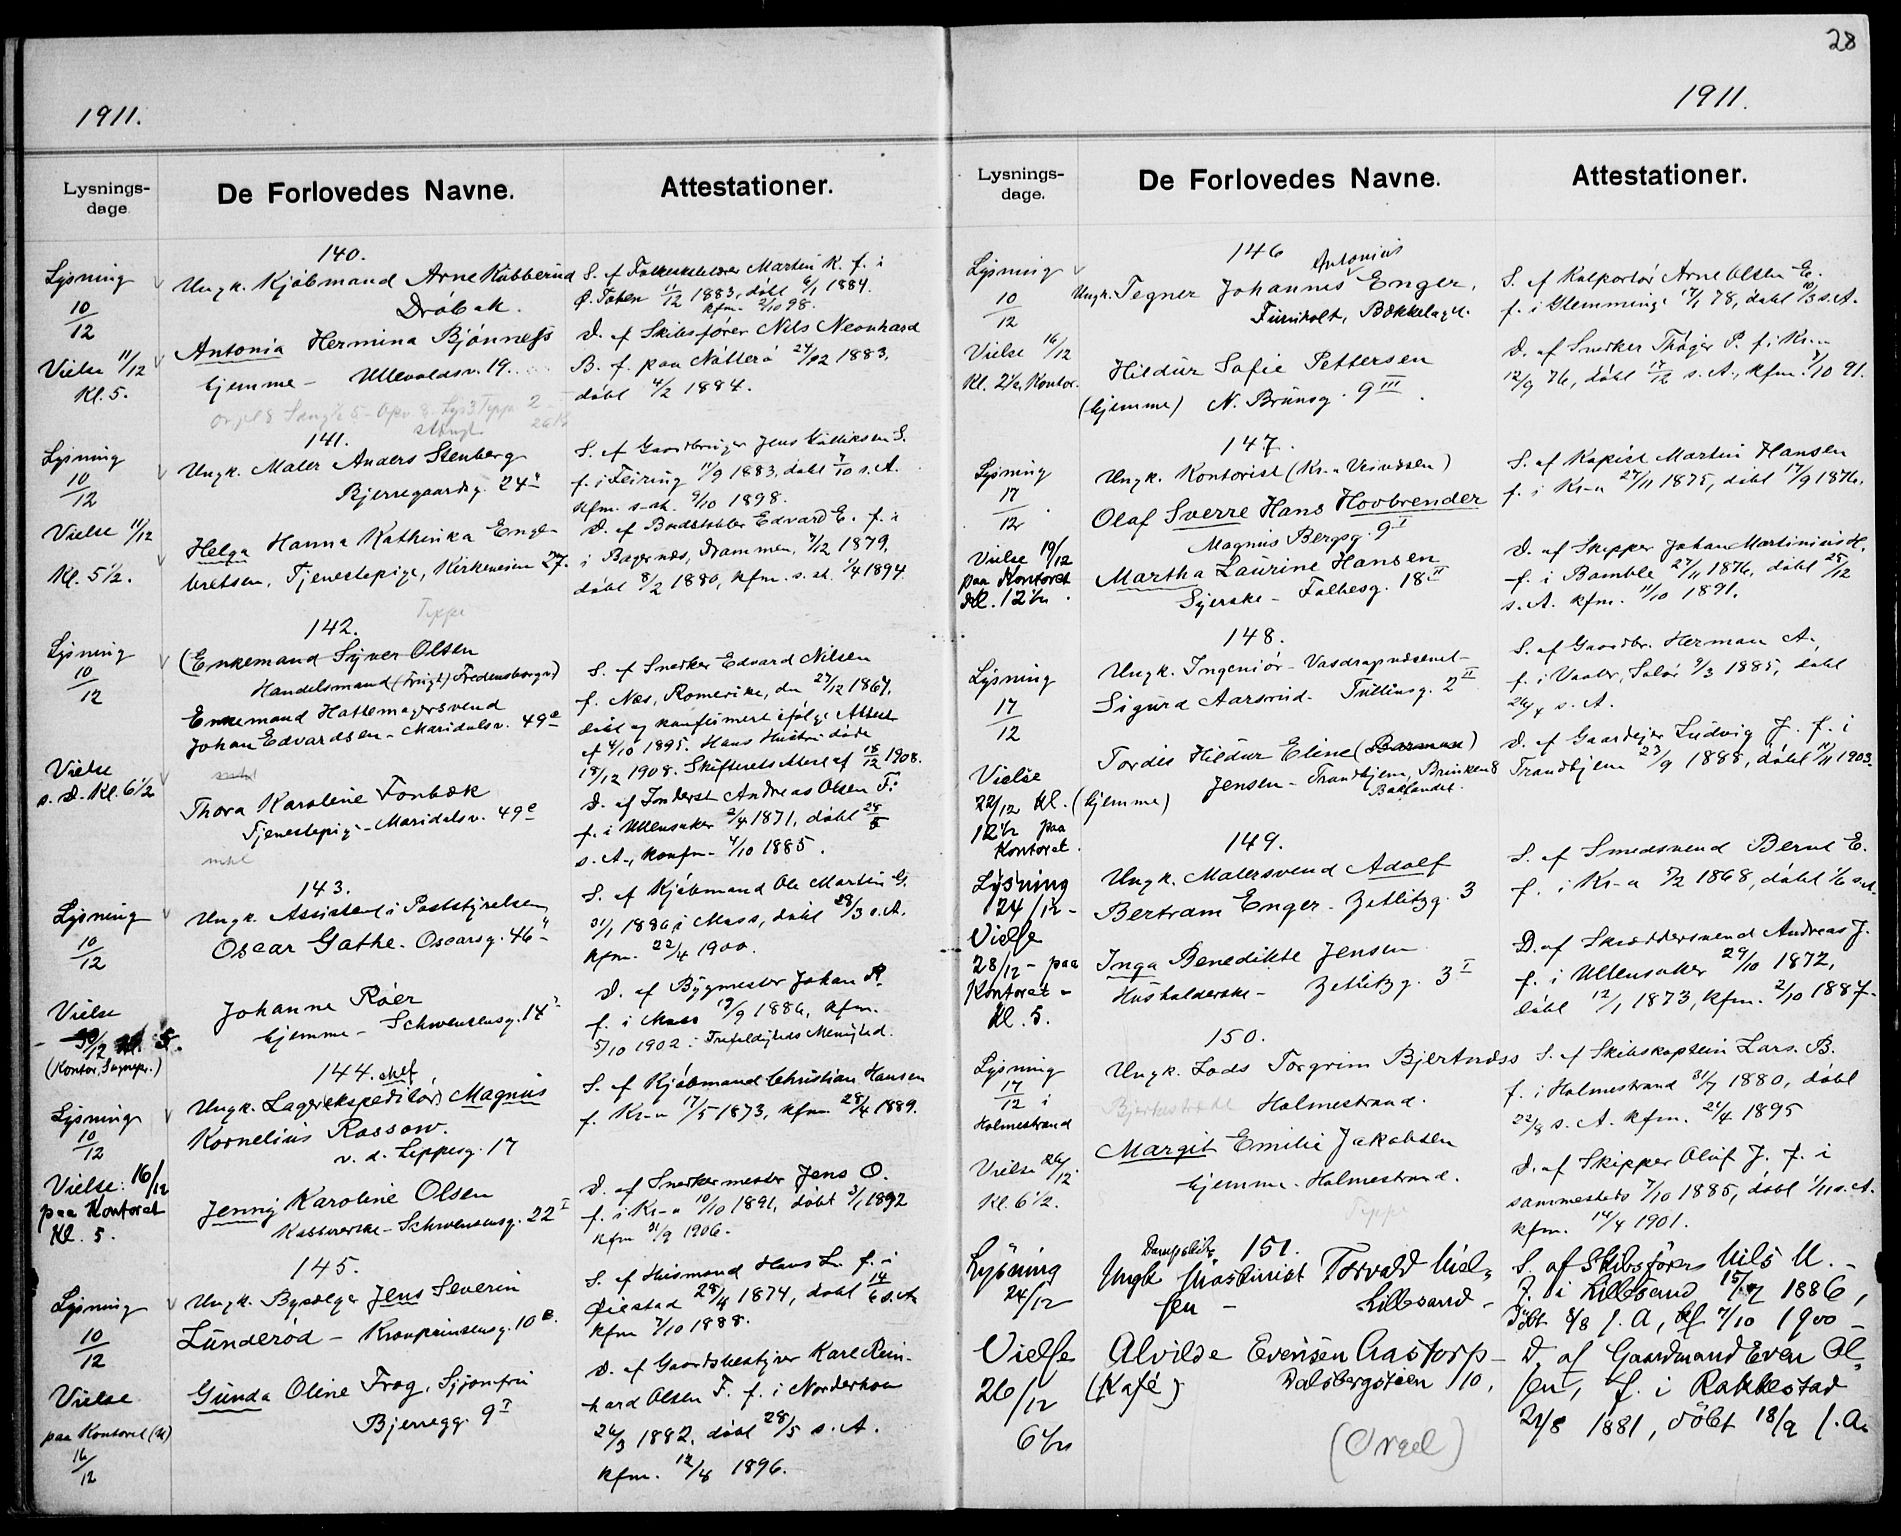 28
1911.
1911.
Lysnings-
dage
De Forlovedes Navne.
Attestationer.
140.
Lysning
10/12
Vielse 11/12
Kl. 5.
Ungk. Kjöbmand Arne Kübberud
Dröbak.
Antonia Hermina Bjönness
hjemme - Ullevoldsv. 19.
S. af Martin K. f. i
Ø. Toten 11/12 1883, döbt 6/1 1884.
kfm. 2/10 98.
D. af Skibsförer Nils Neonhard
B. f. paa Nötterö 24/12 1883,
döbt 4/2 1884.
141.
Lysning
10/12
Vielse 11/12
Kl. 5½.
Ungk. Maler Anders Stenberg
Bjerregaardsg. 24
Helga Hanna Kathinka Enge-
bretsen, Tjenestepige, Kirkeveien 27.
S. af Gaardbruger Jens Gulliksen S.
f. i Feiring 11/9 1883, döbt 7/10 s. A.
kfm. s. st. 9/10 1898.
D. af Edvard E. f. i
i Bragernæs, Drammen, 7/12 1879,
döbt 8/2 1880, kfm. s. st. 1/4 1894
Teppe
142.
Lysning
10/12
Vielse
s. D. Kl. 6½
(Enkemand Syver Olsen
Handelsmand (Frugt) Fredensborgv)
Enkemand Hattemagersvend
Johan Edvardsen - Maridalsv. 49 e
Thora Karoline Fonbæk
Tjenestepige - Maridalsv. 49 e
S. af Snedker Edvard Nilsen
f. Nes, Romerike, den 27/12 1867,
döbt og konfirmert ifölge Attest
af 4/10 1895. Hans Hustru döde
18/12 1908. Skifterets Attest af 18/12 1908.
D. af Inderst Andreas Olsen F.
f. i Ullensaker 2/4 1871, döbt
s. A., konfm. 4/10 1885.
143.
Lysning
10/12
Vielse
Kl. 5.
(Kontor, )
Ungk. Assistent i Poststyrelsen
Oscar Gathe. Oscarsg. 46
Johanne Röer
hjemme - Schwensensg. 14
S. af Kjöbmand Ole Martin G.
31/1 1886, i Moss, döbt 28/3 s. A.
kfm. 22/4 1900.
D. af Bygmester Johan R.
f. i Moss 19/9 1886, kfm.
5/10 1902 i Trefoldigheds Menighed.
144.
Lysning
10/12
Vielse: 16/12
paa Kontoret
Kl. 5.
Ungk. Lagerekspeditör Magnus
Kornelius Rossow.
v. d. Lippesg. 17
Jenny Karoline Olsen
Schwensensg. 22 I
S. af Kjöbmand Christian Hansen
f. Kr-a 17/5 1873, kfm 28/4 1889.
D. af Snedkermester Jens O.
f. i Kr-a 10/10 1891, döbt 3/1 1892
kfm 31/9 1906.
145.
Lysning
10/12
Vielse
paa Kontoret
16/12
Ungk. Bysælger Jens Severin
Lünderöd - Kronprinsensg. 10 e.
Gunda Oline Frog, Syjomfru
Bjerregg. 9 I
S. af Husmand Hans L. f. i
Öiestad 28/4 1874, döbt 14/6 s. A.
kfm 7/10 1888.
D. af Gaardsbestyrer Karl Rein-
hard Olsen F. f. i Norderhov
26/3 1882, döbt 28/5 s. A.
kfm. 12/4 1896.
Lysnings-
dage.
De Forlovedes Navne.
Attestationer.
146
Lysning
10/12
Vielse 16/12
Kl. 2½, Kontor.
Antonius
Ungk. Tegner Johannes Enger,
Furuholt, Bækkelaget.
Hildur Sofie Pettersen
(hjemme) N. Brünsg. 9 III
S. af Kolportör Arne Olsen E.
f. i Glemminge 17/1 78, döbt 10/3 s. A.
D. af Snedker Thöger P. f. i Kr.a
12/9 76, döbt 17/12 s. A., kfm. 7/10 91.
147.
Lysning
17/12
Vielse 19/12
paa Kontoret
Kl. 12½
Ungk. Kontorist (Kr.a Veivæsen)
Olaf Sverre Hans Hovbrender
Magnus Bergsg. 9 I
Martha Laurine Hansen
Syerske - Falbesg. 18 II
S. af Kopist Martin Hansen
f. i Kr-a 27/11 1875, döbt 17/9 1876.
D. af Skipper Johan Martinius H.
f. i Bamble 27/11 1876, döbt 25/12
s. A. kfm. 11/10 1891.
148.
Lysning
17/12
Vielse
22/12 Kl.
12½ paa
Kontoret.
Ungk. Ingeniör - Vasdragvæsenet -
Sigurd Aarsrud - Tullinsg. 2 II
Tordis Hildur Eline
(hjemme) Jensen - Trondhjem, Brinken 8
Baklandet.
S. af Gaardbr. Herman A.,
f. i Vaaler, Solör 9/3 1885, döbt
26/4 s. A.
D. af Gaardejer Ludvig J. f. i
Trondhjem 23/9 1888, döbt 11/11 1903.
149.
Lysning
24/12 -
Vielse
28/12 - paa
Kontoret -
Kl. 5.
Ungk. Malersvend Adolf
Bertram Enger - Zetlitzg. 3
Inga Benedikte Jensen
Husholderske - Zetlitzg. 3 I
S. af Smedsvend Bernt E.
f. i Kr-a 5/2 1868, döbt 1/6 s. A.
D. af Skræddersvend Andreas J.
f. i Ullensaker 29/10 1872,
döbt 12/1 1873, kfm. 2/10 1887-
150.
Lysning
17/12 i
Holmestrand
Vielse 26/12
Kl. 6½.
Ungk. Lods Torgrim Bjertnæss
Holmestrand.
Margit Emilie Jakobsen
hjemme - Holmestrand.
Teppe
S. af Skibskaptein Lars B.
f. i Holmestrand 31/7 1880, döbt
22/8 s. A. kfm. 21/4 1895
D. af Skipper Oluf J. f. i
sammesteds 7/10 1885, döbt 1/11 s. A.
kfm. 14/4 1901.
151.
Lysning
24/12
Vielse
26/12
6½
Dampskibs
Ungk Maskinist Torvald Niel-
sen - Lillesand -
Alvilde Evensen Aastorp -
(Kafé) Dalsbergstien 10,
(Orgel)
S. af Skibsförer Nils N. -
f. i Lillesand 15/7 1886,
döbt 8/8 s. A, kf 7/10 1900 -
D. af Gaardmand Even Ol-
sen, f. i Rakkestad
21/8 1881, döbt 18/9 s. A.